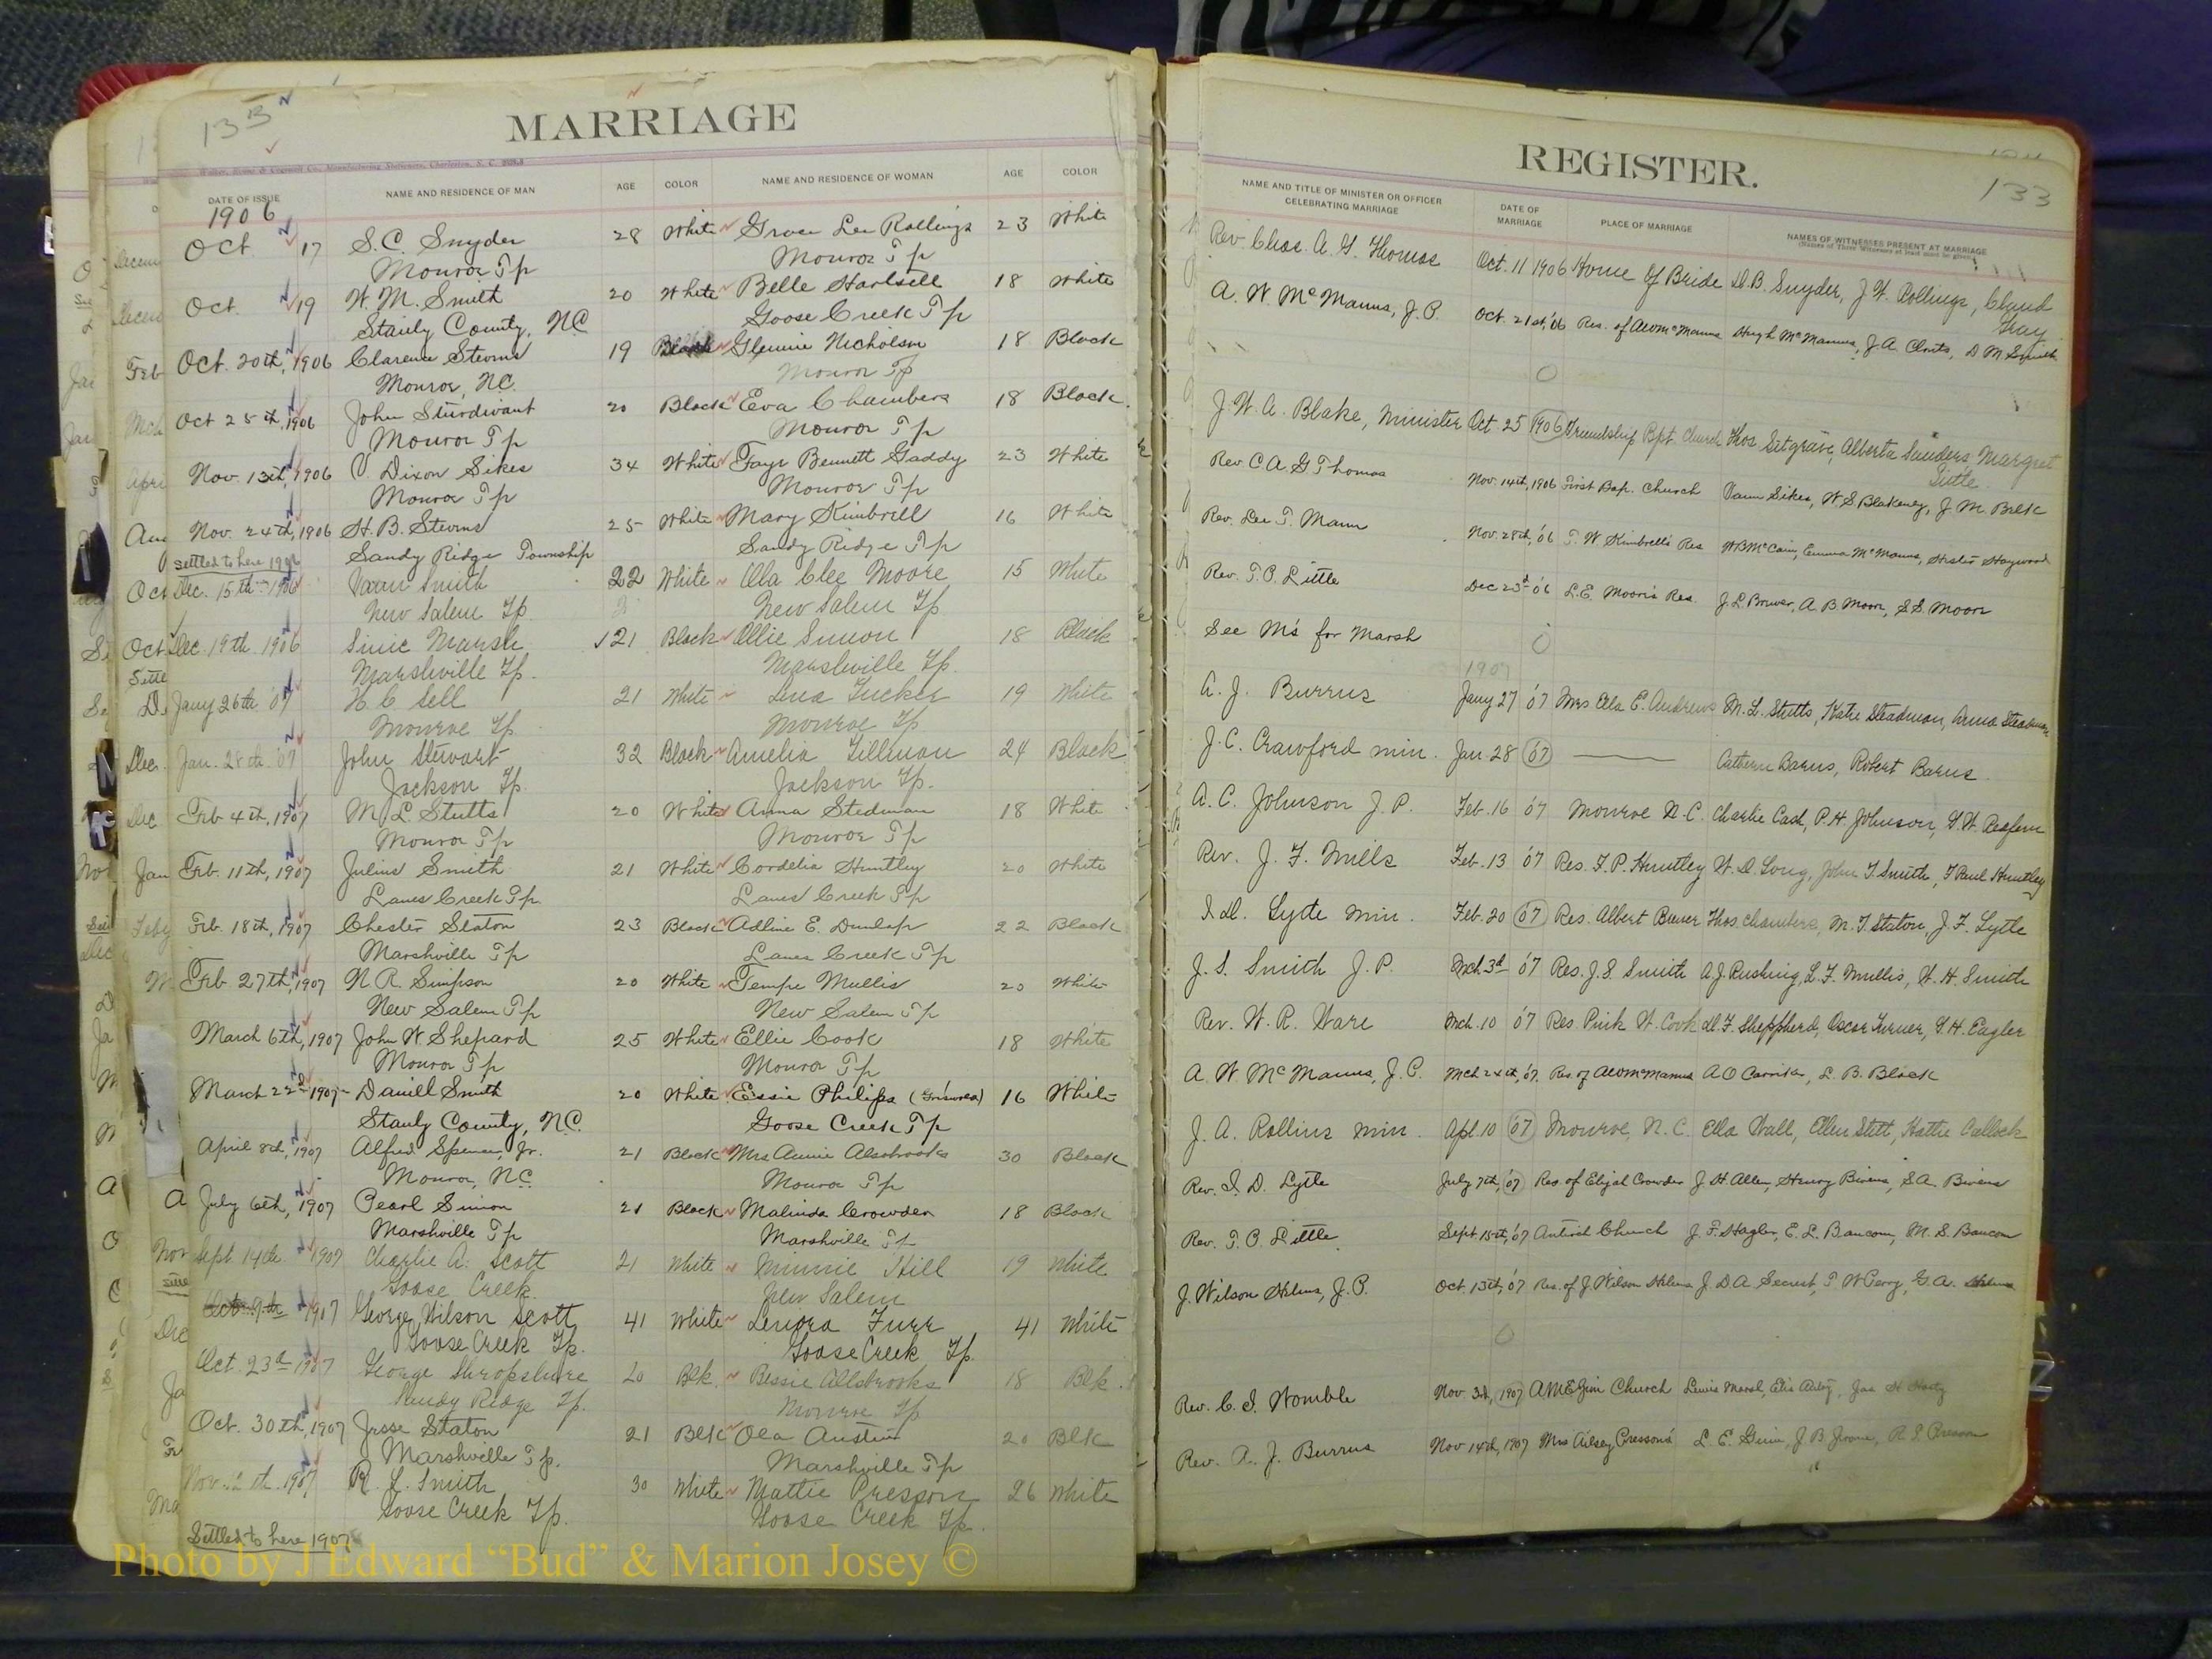 133
MARRIAGE
DATE OF ISSUE
NAME AND RESIDENCE OF MAN
AGE
COLOR
NAME AND RESIDENCE OF WOMAN
AGE
COLOR
1906
Oct. 17 S. C. Snyder 28 White Grace Lee Rollings 23 White
Monroe Tp Monroe Tp
Oct. 19 W. M. Smith 20 White Belle Hartsell 18 White
Stanly County, NC Goose Creek Tp
Oct. 20th, 1906 Clarence Stevens 19 Black Glennie Nicholson 18 Black
Monroe, NC. Monroe Tp
Oct 25th, 1906 John Sturdivant 20 Black Eva Chambers 18 Black
Monroe Tp Monroe Tp
Nov. 13th, 1906 V. Dixon Sikes 34 White Faye Bennett Gaddy 23 White
Monroe Tp Monroe Tp
Nov. 24th, 1906 H. B. Stevens 25 White Mary Kimbrell 16 White
Settled to here 1906 Sandy Ridge Township Sandy Ridge Tp
Dec. 15th 1906 Vann Smith 22 White Ola Clee Moore 15 White
New Salem Tp New Salem Tp
Dec. 19th 1906 Sinie Marsh 21 Black Ollie Simon 18 Black
Marshville Tp. Marshville Tp.
Jany 26th 07 H C Sell 21 White Lena Tucker 19 White
Monroe Tp Monroe Tp
Jan. 28th 07 John Stewart 32 Black Amelia Tillman 24 Black
Jackson Tp. Jackson Tp.
Feb 4th, 1907 M. L. Stutts 20 White Anna Stedman 18 White
Monroe Tp Monroe Tp
Feb. 11th, 1907 Julius Smith 21 White Cordelia Huntley 20 White
Lanes Creek Tp. Lanes Creek Tp
Feb. 18th, 1907 Chester Staton 23 Black Adline E. Dunlap 22 Black
Marshville Tp Lanes Creek Tp
Feb 27th, 1907 N. R. Simpson 20 White Tempe Mullis 20 White
New Salem Tp New Salem Tp
March 6th, 1907 John W Shepard 25 White Ellie Cook 18 White
Monroe Tp Monroe Tp
March 22d 1907 Daniell Smith 20 White Essie Philips 16 White
Stanly County, N.C. Goose Creek Tp
April 8th, 1907 Alfred Spencer, Jr. 21 Black Mrs Annie Alsobrooks 30 Black
Monroe, N.C. Monroe Tp
July 6th, 1907 Pearl Simon 21 Black Malinda Crowder 18 Black
Marshville Tp Marshville Tp
Sept 14th 1907 Charlie A. Scott 21 White Minnie Hill 19 White
Goose Creek. New Salem
Oct 9th 1907 George Wilson Scott 41 White Lenora Furr 41 White
Goose Creek Tp. Goose Creek Tp.
Oct. 23d 1907 George Shropshire 20 Blk. Bessie Allsbrooks 18 Blk.
Sandy Ridge Tp. Monroe Tp
Oct. 30th, 1907 Jesse Staton 21 Blk Ola Austin 20 Blk
Marshville Tp. Marshville Tp
1907 R. L. Smith 30 White Mattie Presson 26 White
Goose Creek Tp. Goose Creek Tp.
Settled to here 1907
REGISTER.
133
NAME AND TITLE OF MINISTER OR OFFICER CELEBRATING MARRIAGE
DATE OF MARRIAGE
PLACE OF MARRIAGE
NAMES OF WITNESSES PRESENT AT MARRIAGE
(Names of Three Witnesses at least must be given.)
Rev. Chas. A. G. Thomas Oct. 11 1906 Home of Bride D.B. Snyder, J. W. Rollings, Claud
A. W. McManus, J. P. Oct. 21st, 06 Res. of A W McManus Hugh McManus, J. A. Clontz, D M Smith
J. W. A. Blake, Minister Oct. 25 1906 Friendship Bpt. Church Thos Setgrave, Alberta Sanders Margret
Rev. C A G Thomas Nov. 14th, 1906 First Bap. Church Vann Sikes, W. S Blakeney, J. M. Belk
Rev. Lee T. Mann Nov. 28th, 06 T. W. Kimbrell's Res W B McCain, Emma McManus, Hester Haywood
Rev. T. P. Little Dec 23d 06 L. E. Moore's Res. J. L. Brewer, A. B Moore, S S. Moore
See Ms for Marsh
1907
A. J. Burrus Jany 27 07 Mrs Ella E. Andrews M. L. Stutts, Katie Steadman, Anna Steadman
J. C. Crawford min. Jan. 28 07 Cathern Barns, Robert Barns
A. C. Johnson J. P. Feb. 16 07 Monroe N. C. Charlie Cash, P. H. Johnson, W. Redfern
Rev. J. F. Mills Feb. 13 07 Res. F. P. Huntley W. D. Long, John T. Smith, F Paul Huntley
I. D. Lytle min. Feb. 20 07 Res. Albert Brewer Thos. Chambers, M. T. Staton, J. F. Lytle
J. S. Smith J. P. Mch. 3d 07 Res. J. S. Smith A. J. Rushing, L. F. Mullis, W. H. Smith
Rev. W. R. Ware Mch. 10 07 Res. Pink W. Cook D. F. Sheppherd, Oscar Turner, G. H. Eagler
A. W. McManus, J. P. Mch 24th, 07. Res. of A W McManus A O Carriker, L. B. Black
J. A. Rollins min. Apl. 10 07 Monroe, N. C. Ella Wall, Ellen Stitt, Hattie
Rev. I. D. Lytle July 7th, 07 Res. of Elijah Crowder J. H. Allen, Henry Bivens, S A. Bivens
Rev. T. P. Little Sept. 15th, 07 Antioch Church J. F. Hagler, E. L. Baucom, M. S. Baucom
J. Wilson Helms, J. P. Oct. 13th, 07 Res. of J Wilson Helms J. D A Secrest, T W Perry, G. A. Helms
Rev. C. I. Womble Nov. 3d, 1907 A M E Zion Church Lewis Marsh, Jas H
Rev. A. J. Burrus Nov 14th, 1907 Mrs Ailsey Presson's L. E. J. B. Jerome, Presson
Photo by J Edward “Bud” & Marion Josey ©